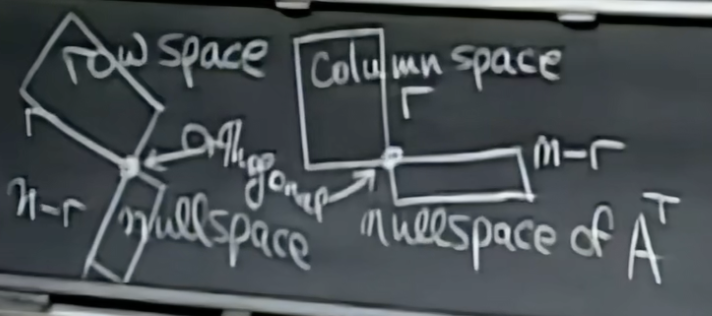 row space
r
n-r
nullspace
orthgonap
column space
r
m-r
nullspace of Aᵀ